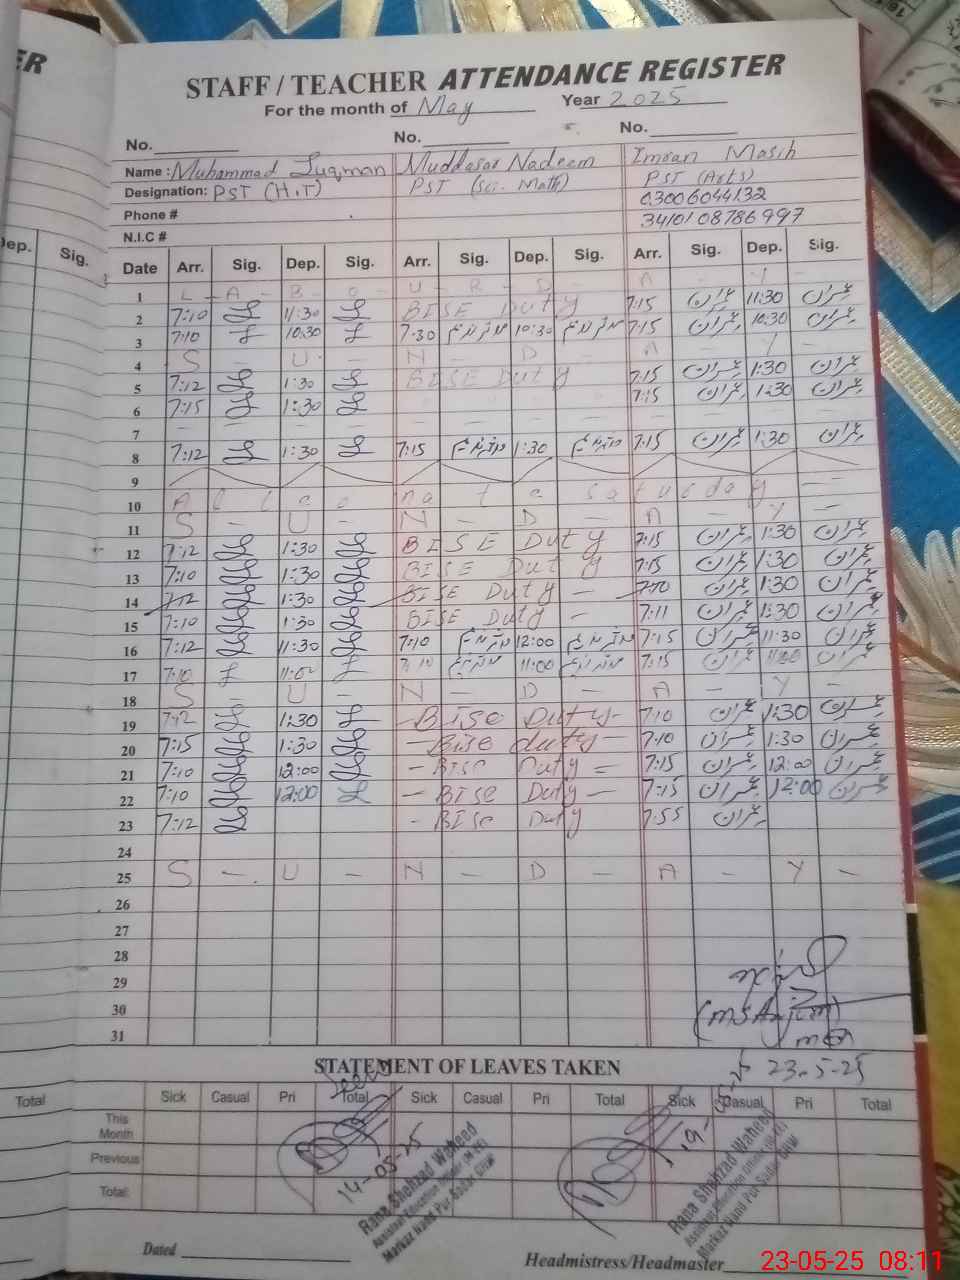 ER
STAFF / TEACHER ATTENDANCE REGISTER
For the month of May Year 2025
No. No. No.
Name : Muhammad Luqman Muddasar Nadeem Imran Masih
Designation: PST (H.T) PST (Sci. Math) PST (Arts)
Phone # 03006044132
N.I.C # 3410108786997
Dep. Sig. Date Arr. Sig. Dep. Sig. Arr. Sig. Dep. Sig. Arr. Sig. Dep. Sig.
1 L - A - B - O - U - R - D - A - Y -
2 7:10 11:30 BISE Duty 7:15 عمران 11:30 عمران
3 7:10 10:30 7:30 10:30 7:15 عمران 10:30 عمران
4 S - U - N - D - A - Y -
5 7:12 1:30 BISE Duty 7:15 عمران 1:30 عمران
6 7:15 1:30 7:15 عمران 1:30 عمران
7
8 7:12 1:30 7:15 1:30 7:15 عمران 1:30 عمران
9
10 saturday
11 S - U - N - D - A - Y -
12 7:12 1:30 BISE Duty 7:15 عمران 1:30 عمران
13 7:10 1:30 BISE Duty 7:15 عمران 1:30 عمران
14 7:12 1:30 BISE Duty - 7:10 عمران 1:30 عمران
15 7:10 1:30 BISE Duty - 7:11 عمران 1:30 عمران
16 7:12 11:30 7:10 12:00 7:15 عمران 11:30 عمران
17 7:10 11:00 7:10 11:00 7:15 عمران 11:00 عمران
18 S - U - N - D - A - Y -
19 7:12 1:30 - BISE Duty - 7:10 عمران 1:30 عمران
20 7:15 1:30 - Bise duty - 7:10 عمران 1:30 عمران
21 7:10 12:00 - BISE Duty - 7:15 عمران 12:00 عمران
22 7:10 12:00 - BISE Duty - 7:15 عمران 12:00 عمران
23 7:12 - BISE Duty 7:55 عمران
24
25 S - U - N - D - A - Y -
26
27
28
29
30
31
23-5-25
STATEMENT OF LEAVES TAKEN
Seen
Total Sick Casual Pri Total Sick Casual Pri Total Sick Casual Pri Total
This Month
Previous
Total:
14-05-25
Rana Shehzad Waheed
Assistant Education Officer (M-EE)
Markaz Nand Pur Sadar GRW
Rana Shehzad Waheed
Assistant Education Officer (M-EE)
Markaz Nand Pur Sadar GRW
Dated Headmistress/Headmaster
23-05-25 08:11